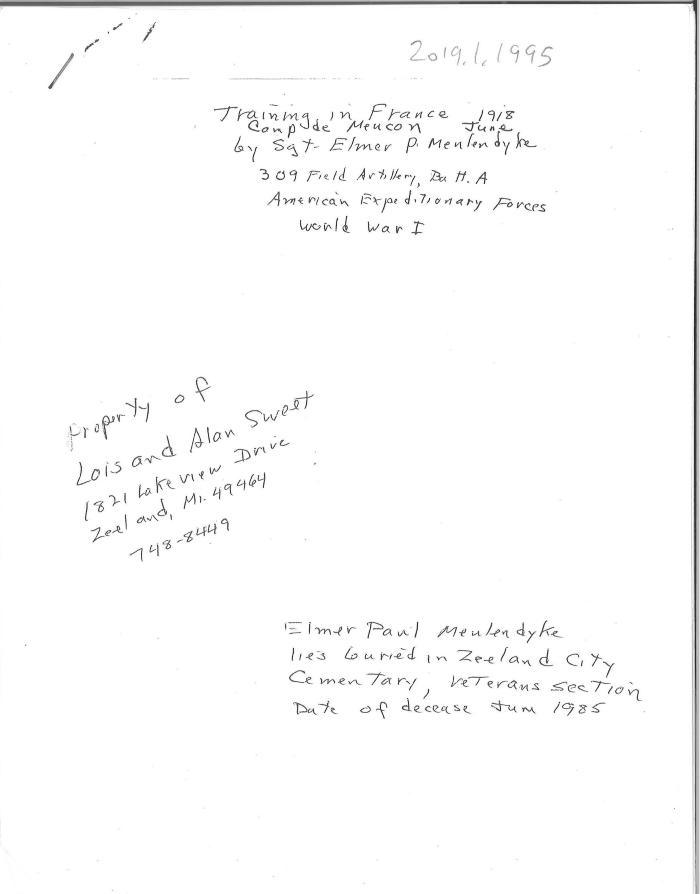 2019.1.1995
Training in France 1918
Coup de Meucon June
by Sgt. Elmer P. Meulendyke
309 Field Artillery, Ba H. A
American Expeditionary Forces
World War I
Property of
Lois and Alan Sweet
1821 Lakeview Drive
Zeeland, Mi. 49464
748-8449
Elmer Paul Meulendyke
lies buried in Zeeland City
Cementary, Veterans section
Date of decease Jum 1985